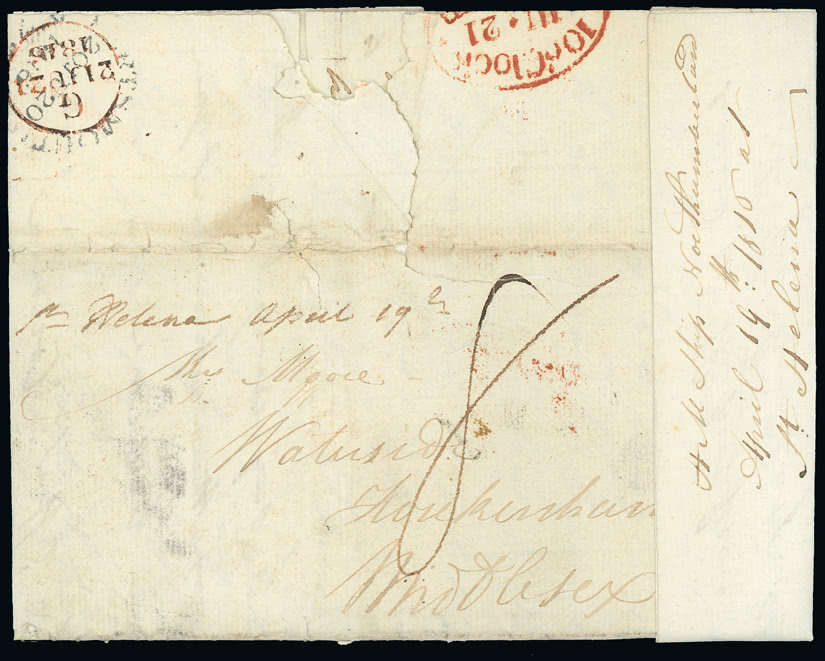 PORTSMOUTH
G
21 JU 21
1816
10 o'Clock
JU. 21
St. Helena April 19th
Mrs Moore
Waterside
Twickenham
Middlesex
8
H M Ship Northumberland
April 19th. 1816 at
St Helena